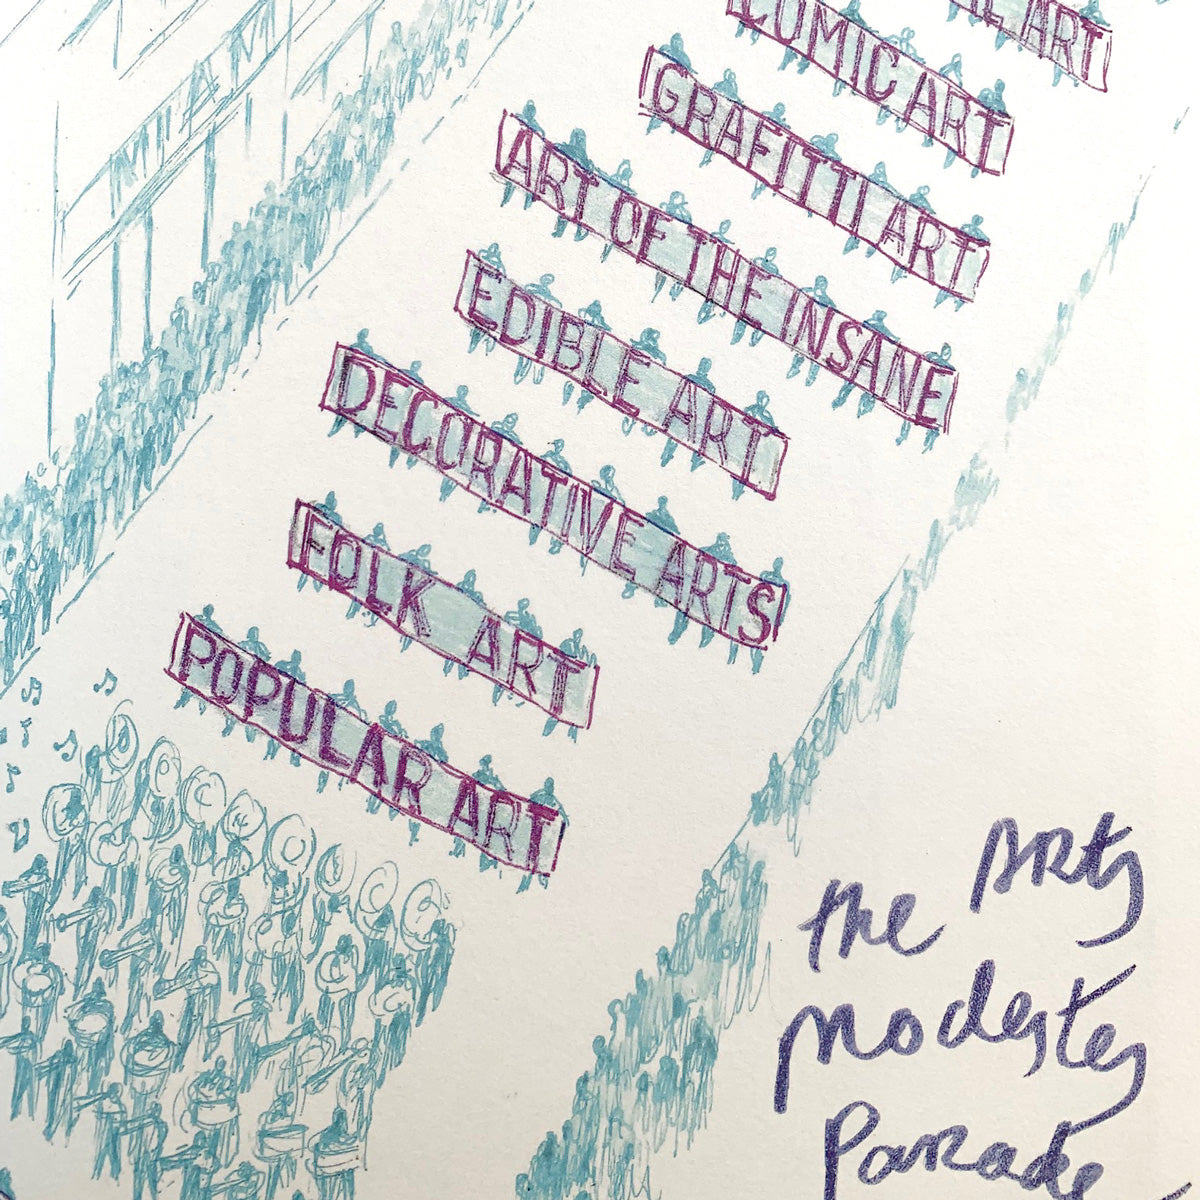 ART
COMIC ART
GRAFITTI ART
ART OF THE INSANE
EDIBLE ART
DECORATIVE ARTS
FOLK ART
POPULAR ART
MIAM
the ARts
modestes
Parade